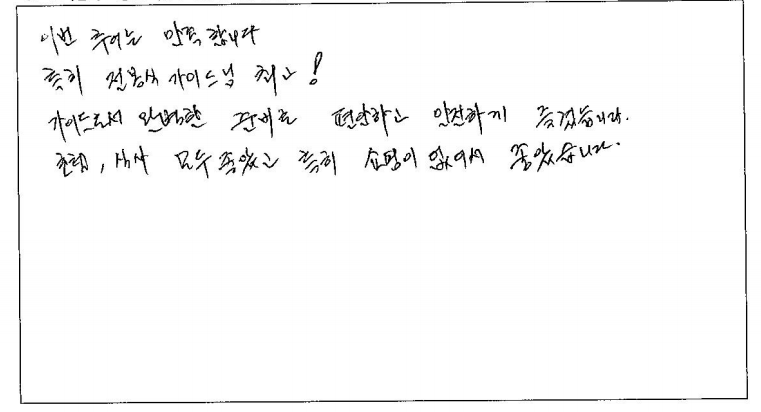 이번 투어는 만족합니다
특히 전용식 가이드님 최고!
가이드로서 완벽한 준비로 편안하고 안전하게 즐겼습니다.
호텔, 식사 모두 좋았고 특히 쇼핑이 없어서 좋았습니다.